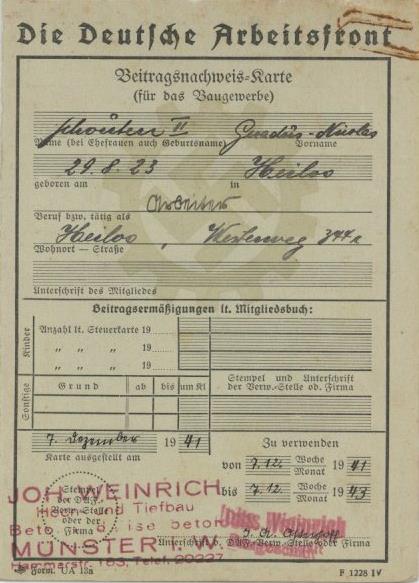 Die Deutsche Arbeitsfront
Beitragsnachweis-Karte
(für das Baugewerbe)
Schouten II
Name (bei Ehefrauen auch Geburtsname) Vorname
29.8.23 Heiloo
geboren am in
Arbeiter
Beruf bzw. tätig als
Heiloo, Westerweg 344a
Wohnort – Straße
Unterschrift des Mitgliedes
Beitragsermäßigungen lt. Mitgliedsbuch:
Kinder
Anzahl lt. Steuerkarte 19
„ „ „ 19
„ „ „ 19
Sonstige
Grund ab bis um Kl
Stempel und Unterschrift
der Verw.-Stelle od. Firma
7. Dezember 19 41
Karte ausgestellt am
Zu verwenden
von 7.12. Woche Monat 19 41
bis 7.12. Woche Monat 19 43
Stempel
der D.A.F.
Verw.-Stelle
oder der
Firma
JOH. WEINRICH
Hoch- und Tiefbau
MÜNSTER i. W.
Hammerstr. 163, Telef. 20227
Weinrich
Baugeschäft
Unterschrift d. D.A.F.-Verw.-Stelle od. Firma
Form. UA 13a F 1228 IV